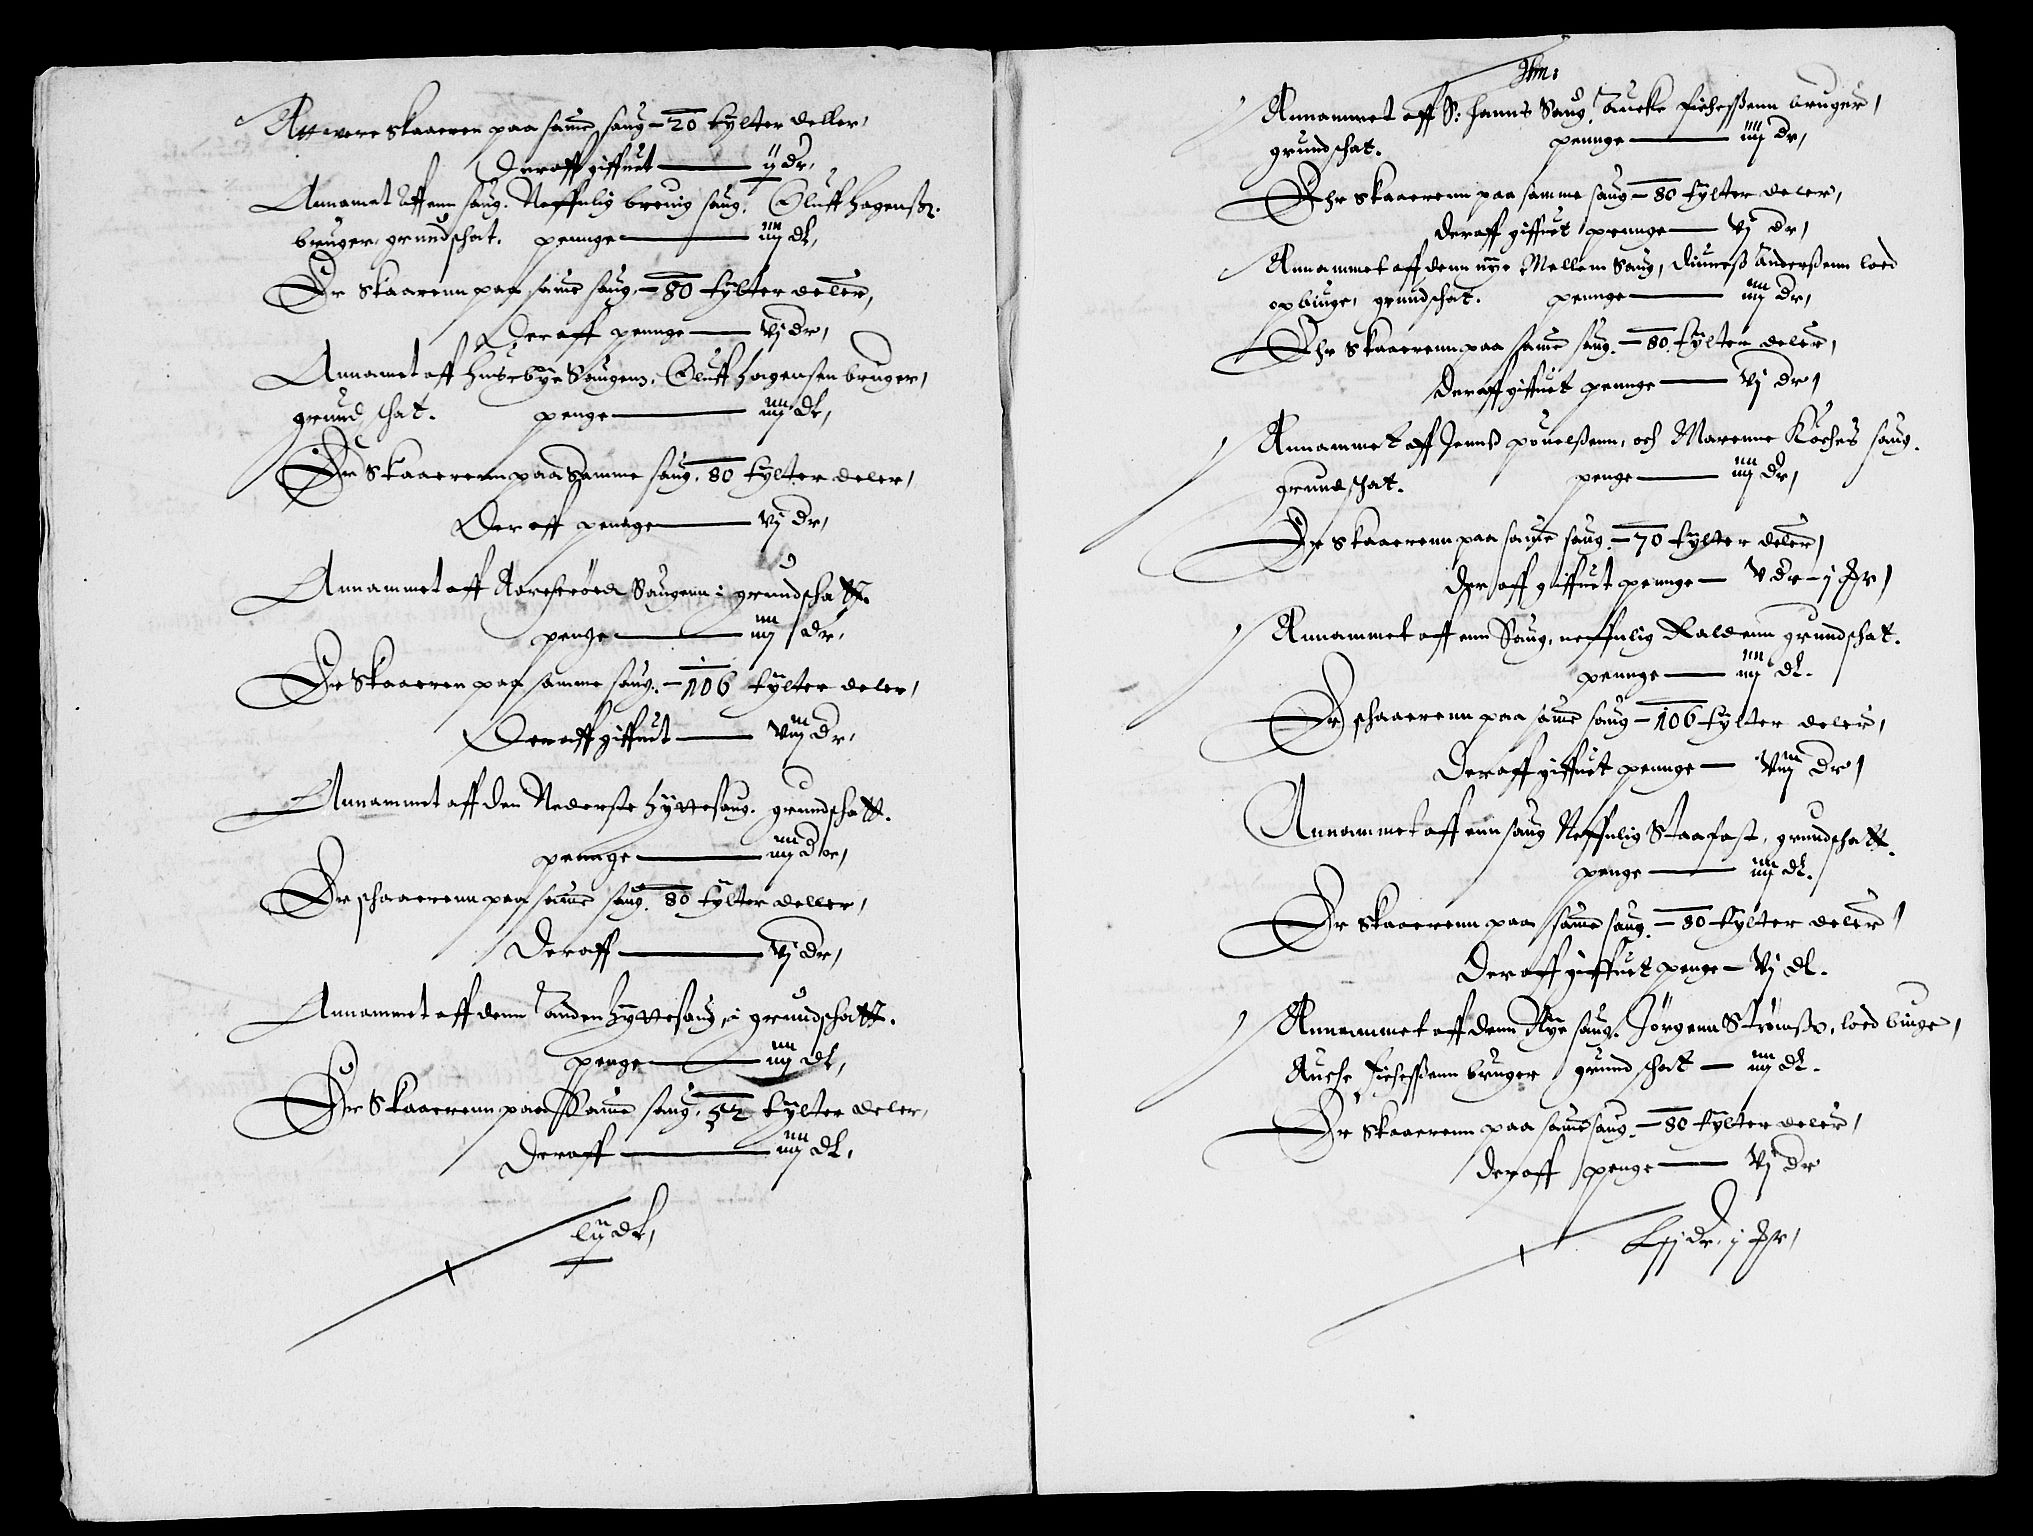 Att were skaaeren paa same saug – 20 tylter deller,
Deraff giffuet — ij dr,
Annamet Aff enn saug. Neffnlig breuig saug. Oluff hagenss.
bruger, grundschat. pennge — iiij dr,
Er Skaarenn paa same saug. – 80 tylter deler,
Deraff pennge — vj dr,
Annamet aff husebye Saugenn. Oluff hagensen bruger,
grund schat. penge — iiij dr,
Er Skaaerenn paa Samme saug. 80 tylter deler,
Der aff pennge — vj dr,
Annammet aff Saugenn: grundschatt.
penge — iiij dr.
Er Skaaeren paa samme saug. – 106 tylter deler,
Deraff giffuit — viij dr,
Annammet aff den Nederste hyttesaug. grundschatt.
pennge — iiij dr,
Er schaaerenn paa same saug. 80 tylter deller,
Deraff — vj dr,
Annammet aff denn Anden hyttesaug, i grundschatt.
penge — iiij dr,
Er Skaaerenn paa Same saug. 52 tylter deler,
Deraff — iiij dr,
lij dr,
Itm:
Annammet aff S: hanns Saug, Aucke bruger,
grundschat. pennge — iiij dr,
Ehr Skaaerenn paa samme saug – 80 tylter deler,
deraff giffuet pennge — vj dr,
Annammet aff denn nye Mellem Saug, Anderssenn loed
opbiuge, grundschat. pennge — iiij dr,
Ehr Skaaerenn paa same saug. – 80. tylter deler,
deraff giffuet pennge — vj dr,
Annammet aff Jenns pouelssenn, och Marenne Koches saug.
grundschat. penge — iiij dr,
Er Skaaerenn paa same saug. – 70 tylter deler,
der aff giffuet pennge — v dr – j
Annammet aff enn Saug, neffnlig Raldenn grundschat.
pennge — iiij dr.
Er schaaerenn paa same saug – 106 tylter deler,
Deraff giffuet pennge — viij dr,
Annammet aff enn saug Neffnlig Staafast, grundschatt.
penge — iiij dr.
Er Skaaerenn paa same saug. – 80 tylter deler,
Deraff giffuet penge – vj dr.
Annammet aff denn Nye saug. Jörgenn loed biuge,
bruger grund schat — iiij dr.
Er Skaaerenn paa same saug. – 80 tylter deler,
deraff penge — vj dr
dr. j